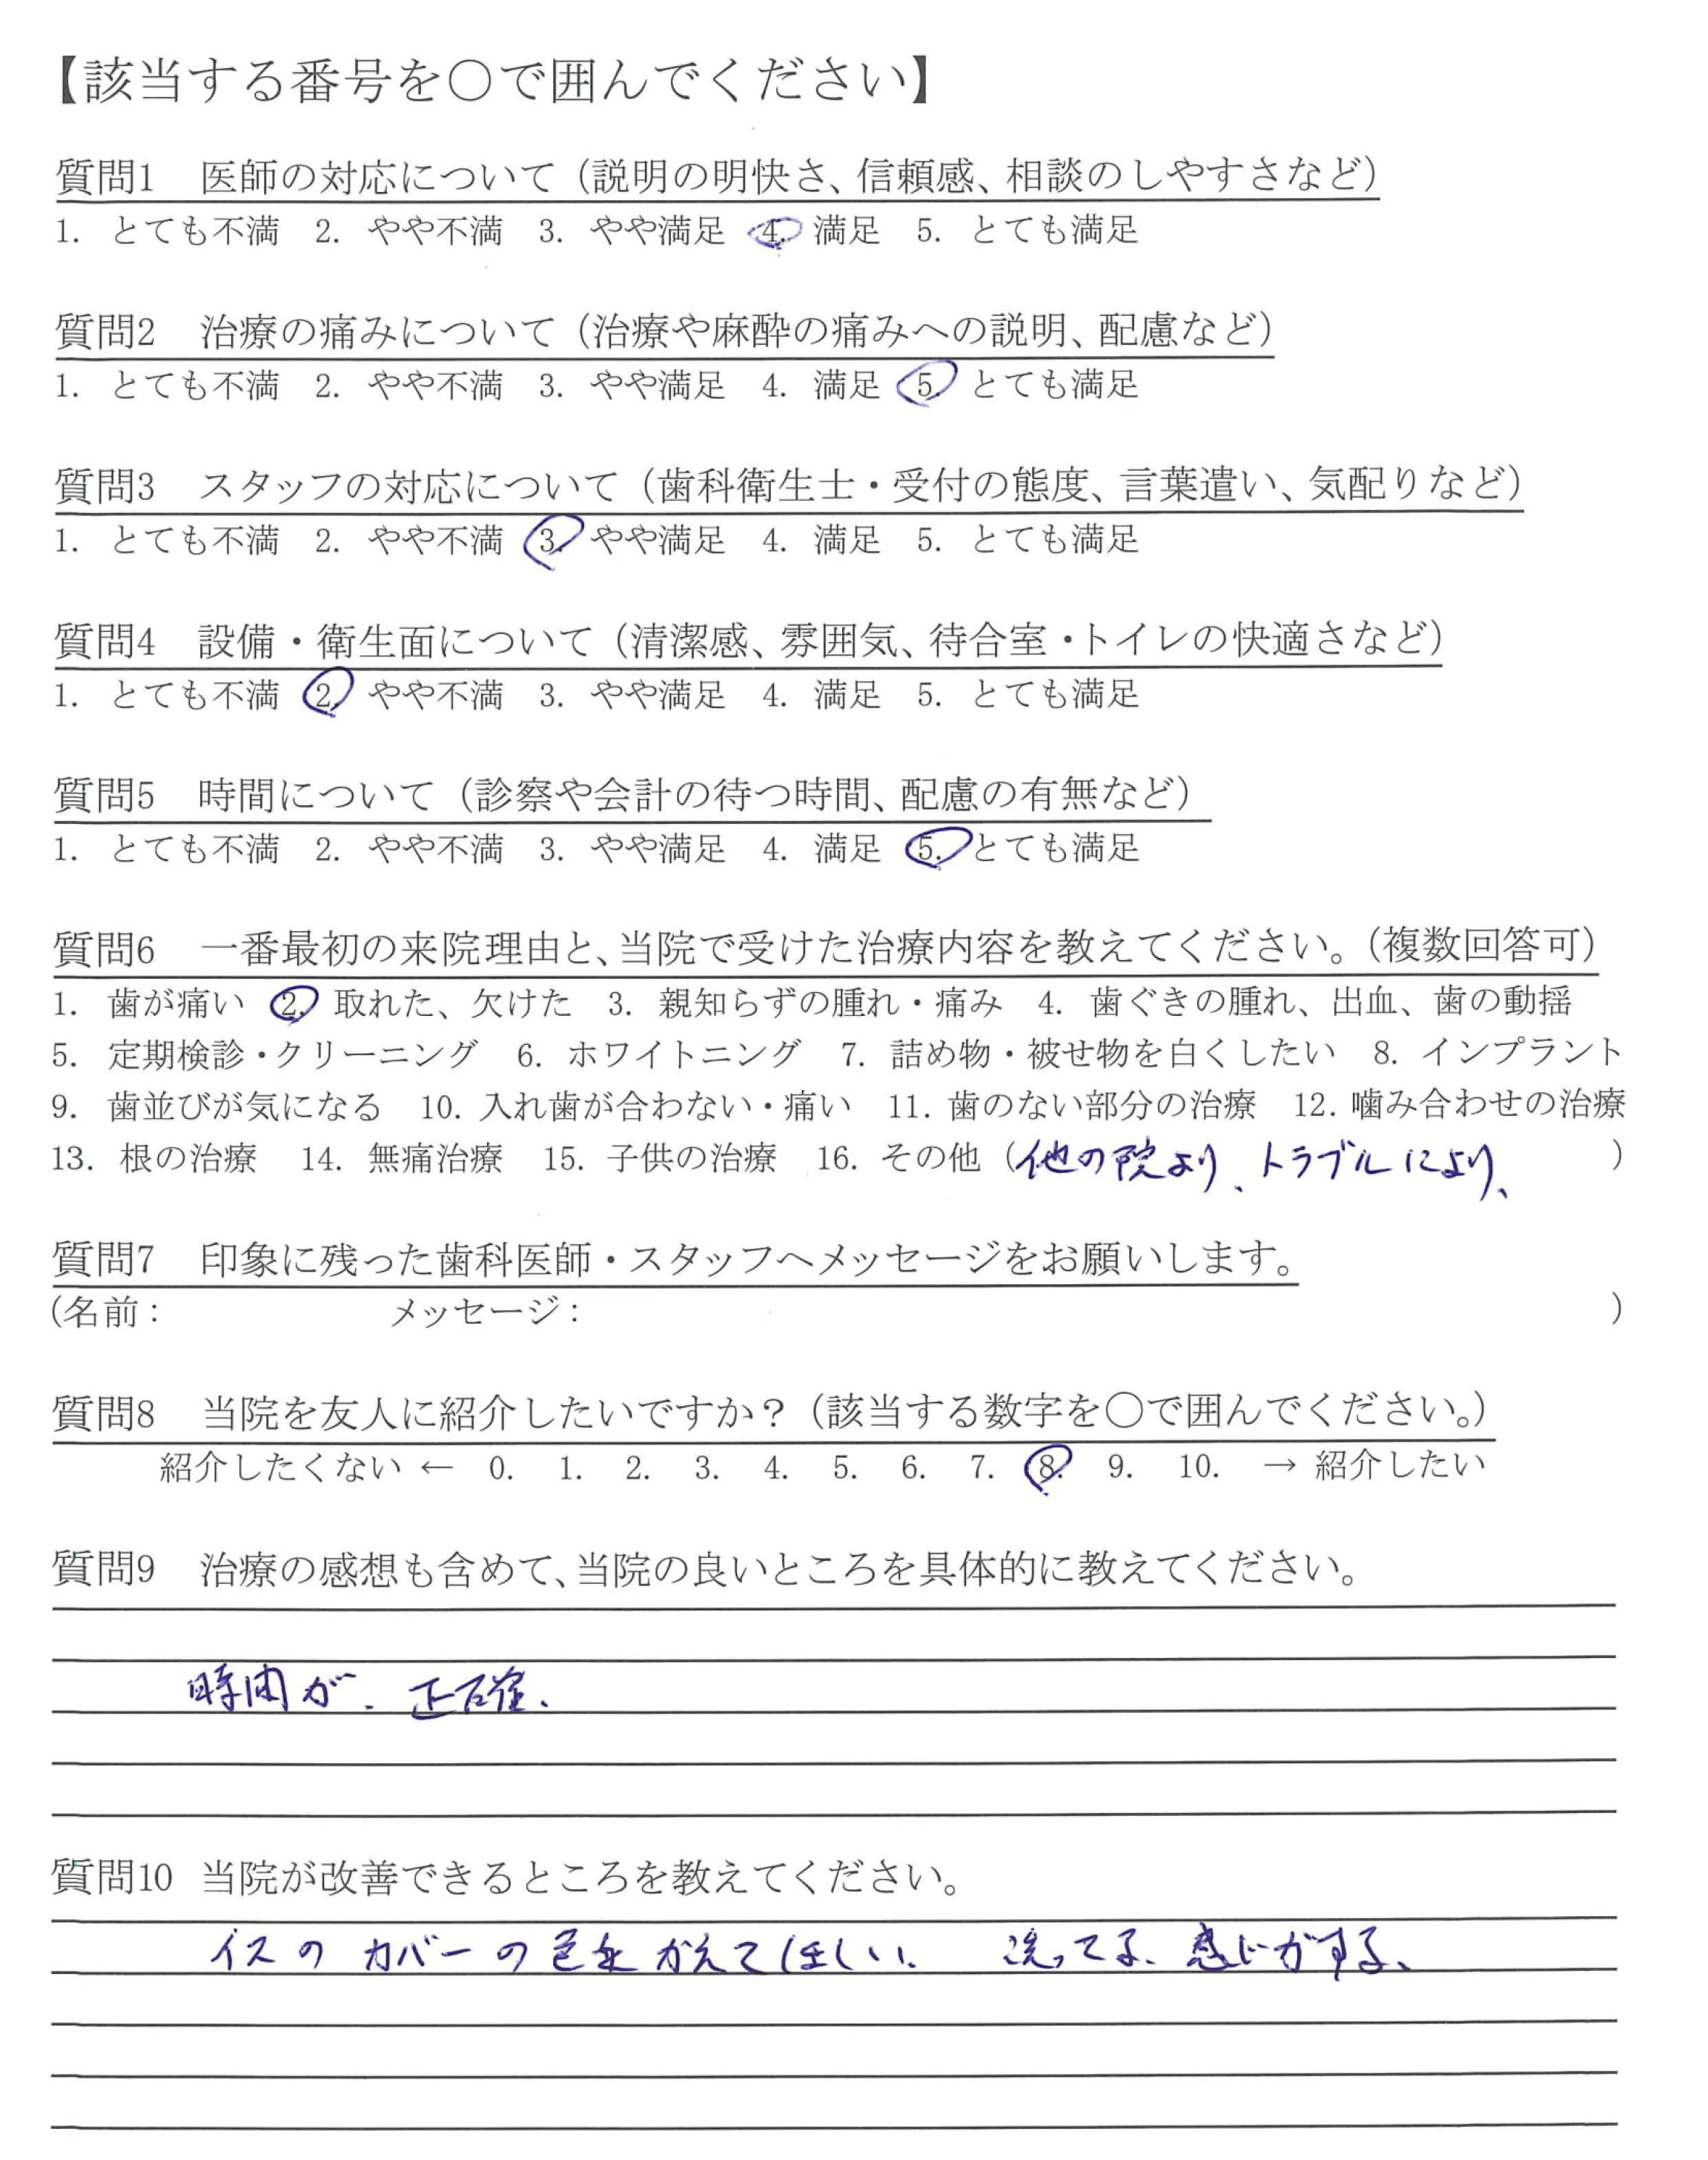 【該当する番号を○で囲んでください】
質問1 医師の対応について（説明の明快さ、信頼感、相談のしやすさなど）
1. とても不満 2. やや不満 3. やや満足 4. 満足 5. とても満足
質問2 治療の痛みについて（治療や麻酔の痛みへの説明、配慮など）
1. とても不満 2. やや不満 3. やや満足 4. 満足 5. とても満足
質問3 スタッフの対応について（歯科衛生士・受付の態度、言葉遣い、気配りなど）
1. とても不満 2. やや不満 3. やや満足 4. 満足 5. とても満足
質問4 設備・衛生面について（清潔感、雰囲気、待合室・トイレの快適さなど）
1. とても不満 2. やや不満 3. やや満足 4. 満足 5. とても満足
質問5 時間について（診察や会計の待つ時間、配慮の有無など）
1. とても不満 2. やや不満 3. やや満足 4. 満足 5. とても満足
質問6 一番最初の来院理由と、当院で受けた治療内容を教えてください。（複数回答可）
1. 歯が痛い 2. 取れた、欠けた 3. 親知らずの腫れ・痛み 4. 歯ぐきの腫れ、出血、歯の動揺
5. 定期検診・クリーニング 6. ホワイトニング 7. 詰め物・被せ物を白くしたい 8. インプラント
9. 歯並びが気になる 10. 入れ歯が合わない・痛い 11. 歯のない部分の治療 12. 噛み合わせの治療
13. 根の治療 14. 無痛治療 15. 子供の治療 16. その他（他の院より、トラブルにより、）
質問7 印象に残った歯科医師・スタッフへメッセージをお願いします。
（名前： メッセージ： ）
質問8 当院を友人に紹介したいですか？（該当する数字を○で囲んでください。）
紹介したくない ← 0. 1. 2. 3. 4. 5. 6. 7. 8. 9. 10. → 紹介したい
質問9 治療の感想も含めて、当院の良いところを具体的に教えてください。
時間が、正確、
質問10 当院が改善できるところを教えてください。
イスのカバーの色をかえてほしい、 洗ってる、感じがする、